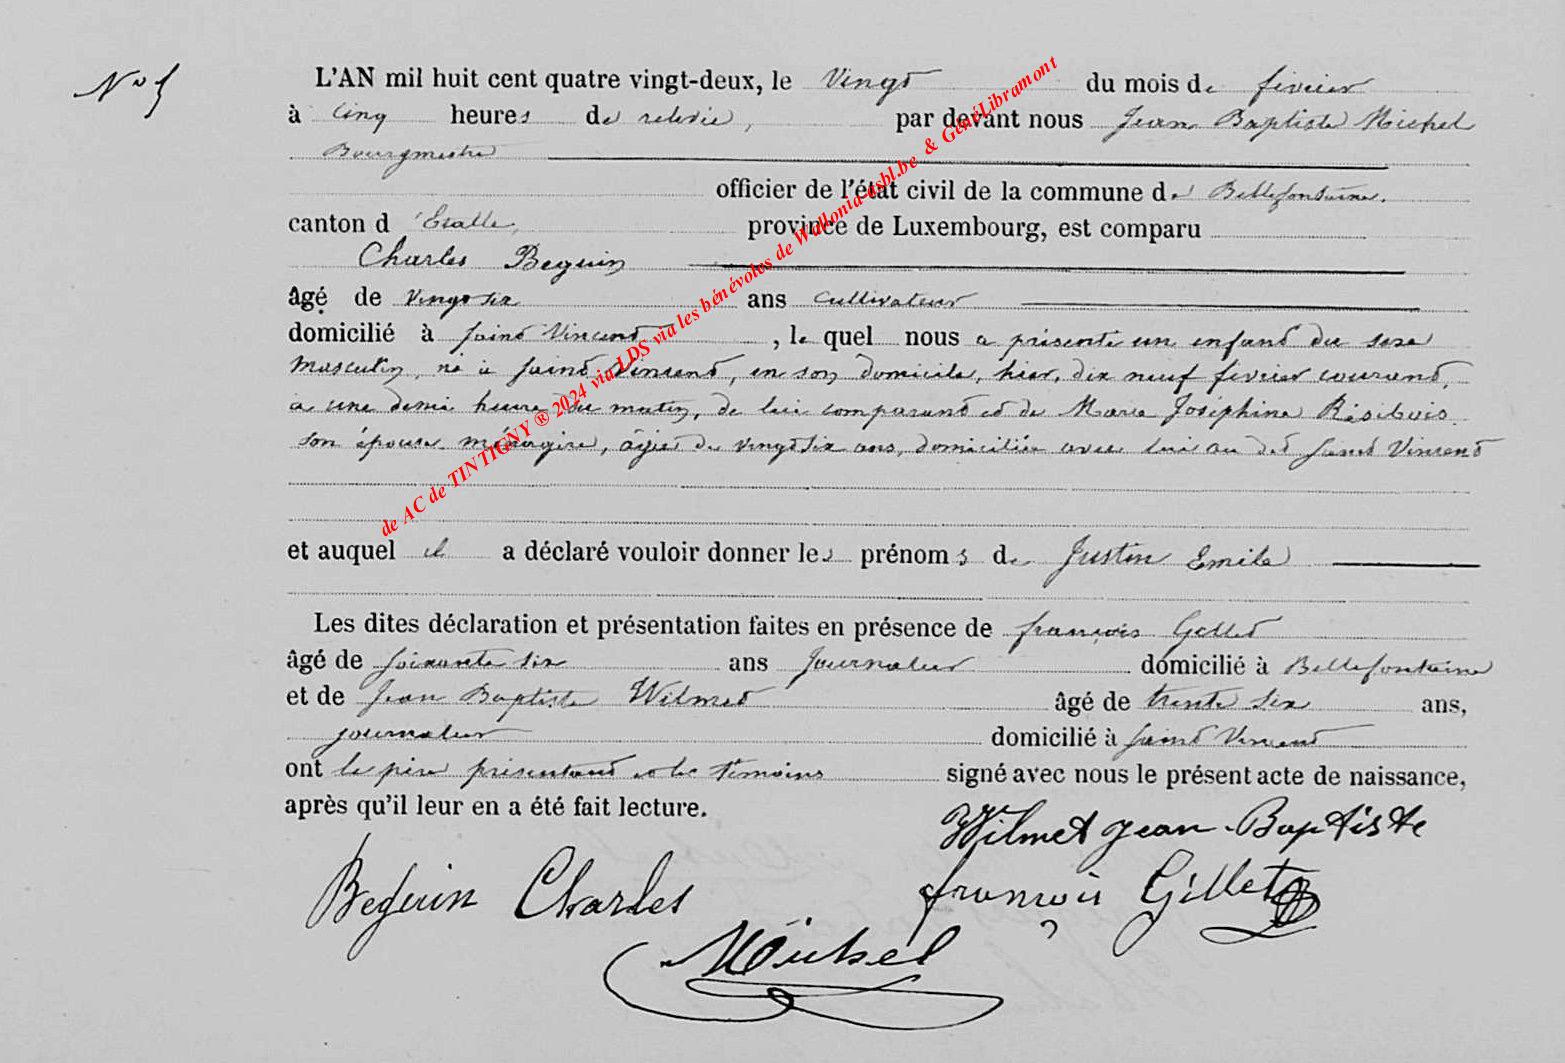 N° 5
L'AN mil huit cent quatre vingt-deux, le Vingt du mois de fevrier
à Cinq heures de relevée, par devant nous Jean Baptiste Michel
Bourgmestre
officier de l'état civil de la commune de Bellefontaine.
canton d'Etalle, province de Luxembourg, est comparu
Charles Beguin
âgé de vingt six ans Cultivateur
domicilié à Saint Vincent, le quel nous a présenté un enfant du sexe
masculin, né à Saint Vincent, en son domicile, hier, dix neuf fevrier courant,
à une demie heure du matin, de lui comparant et de Marie Joséphine Résibois
son épouse ménagère, âgée de vingt six ans, domiciliée avec lui au dit Saint Vincent
et auquel il a déclaré vouloir donner les prénoms de Justin Emile
Les dites déclaration et présentation faites en présence de françois Gillet
âgé de soixante six ans Journalier domicilié à Bellefontaine
et de Jean Baptiste Wilmet âgé de trente six ans,
journalier domicilié à Saint Vincent
ont le père présentant et les témoins signé avec nous le présent acte de naissance,
après qu'il leur en a été fait lecture.
Wilmet jean-Baptiste
Beguin Charles françois Gillet
Michel
de AC de TINTIGNY ® 2024 via LDS via les bénévoles de Wallonia-asbl.be & GénéLibramont